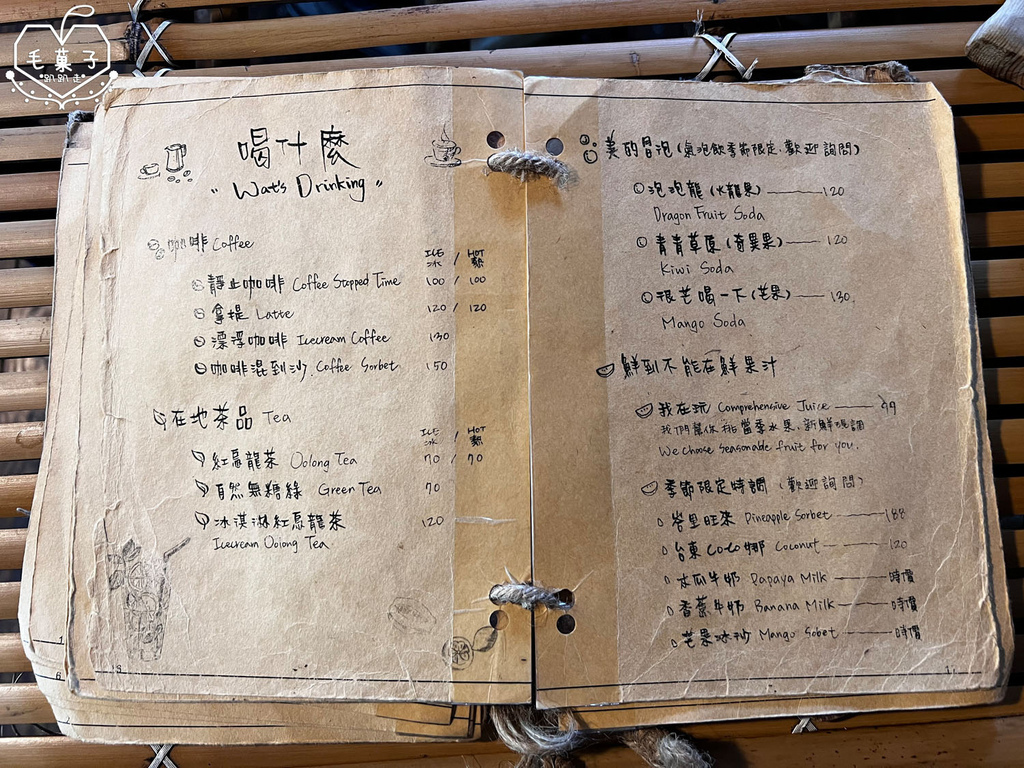 毛菓子
趴趴走
喝什麼
"Wat's Drinking"
咖啡 Coffee
ICE 冰 / HOT 熱
靜止咖啡 Coffee Stopped Time 100 / 100
拿提 Latte 120 / 120
漂浮咖啡 Icecream Coffee 130
咖啡混到沙 Coffee Sorbet 150
在地茶品 Tea
ICE 冰 / HOT 熱
紅烏龍茶 Oolong Tea 70 / 70
自然無糖綠 Green Tea 70
冰淇淋紅烏龍茶 120
Icecream Oolong Tea
美的冒泡(氣泡飲季節限定.歡迎詢問)
泡泡龍(火龍果) 120
Dragon Fruit Soda
青青草原(奇異果) 120
Kiwi Soda
很芒喝一下(芒果) 130
Mango Soda
鮮到不能在鮮果汁
我在玩 Comprehensive Juice 99
我們幫你挑當季水果.新鮮現調
We choose seasonable fruit for you.
季節限定特調(歡迎詢問)
峇里旺來 Pineapple Sorbet 188
台東COCO娜 Coconut 120
木瓜牛奶 Papaya Milk 時價
香蕉牛奶 Banana Milk 時價
芒果冰沙 Mango Sobet 時價